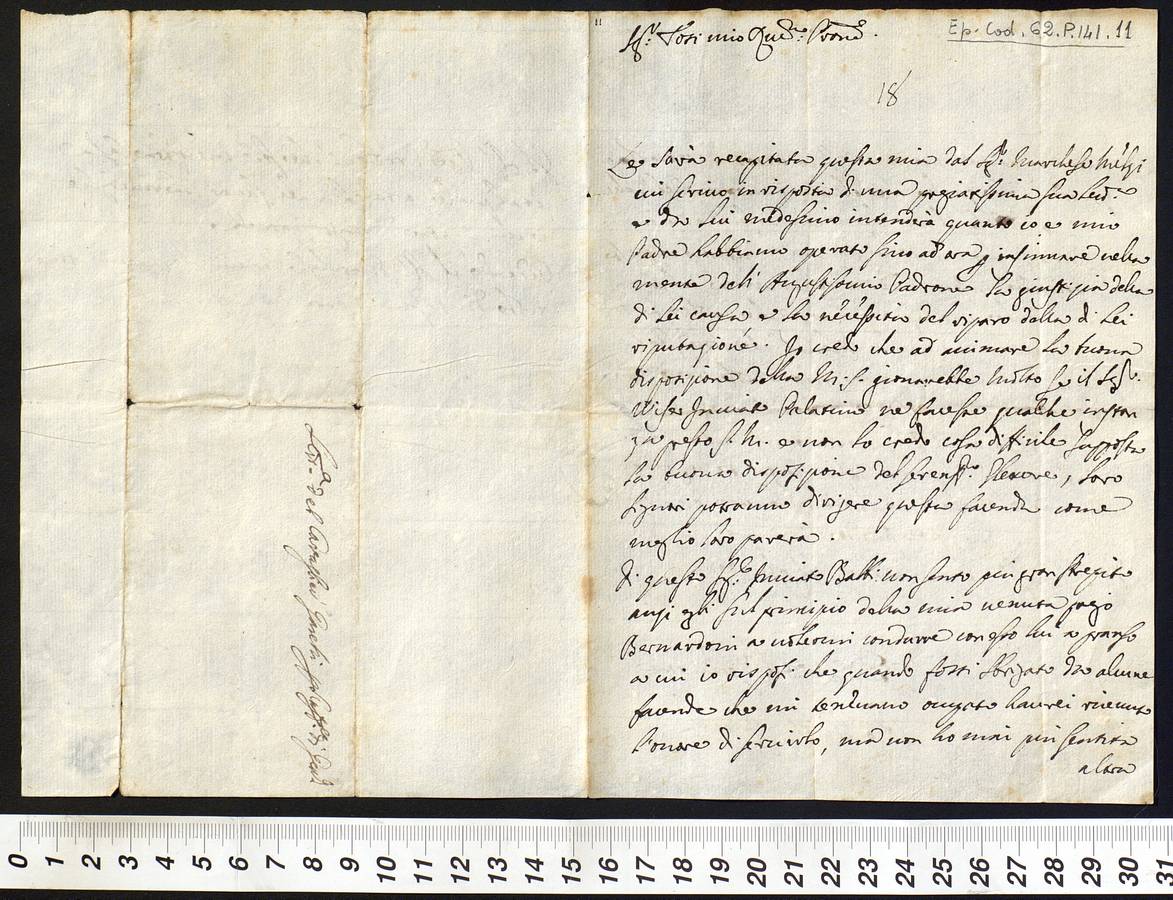 11
Ep. Cod. 62. P. 141. 11
18
Le sarà recapitata questa mia dal Sig.r Marchese Melzi
mi scrivo in risposta di una pregiatissima sua
e da lui medesimo intenderà quanto io e mio
Padre habbiamo operato sino ad ora p insinuare nella
mente dell' Augustissimo Padrone la giustizia della
di Lei causa e la necessita del riparo della di Lei
riputazione. Io credo che ad animare la buona
disposizione della M. S. giovarebbe molto se il
Inviato Palatino ne facesse qualche instan
za presso S. M. e non lo credo cosa difficile supposta
la buona disposizione del Seren.mo Elettore, loro
Signori potranno dirigere questa facenda come
meglio loro parerà.
Di questo Sig.r Inviato non sento piu gran strepito
anzi egli sul principio della mia venuta pregò
Bernardoni a volermi condurre con esso lui a pranso
a cui io risposi che quando fossi sbrigato da alcune
facende che mi tenevano occupato haurei ricevuto
l'onore di servirlo, ma non ho mai piu sentita
altra
0 1 2 3 4 5 6 7 8 9 10 11 12 13 14 15 16 17 18 19 20 21 22 23 24 25 26 27 28 29 30 31